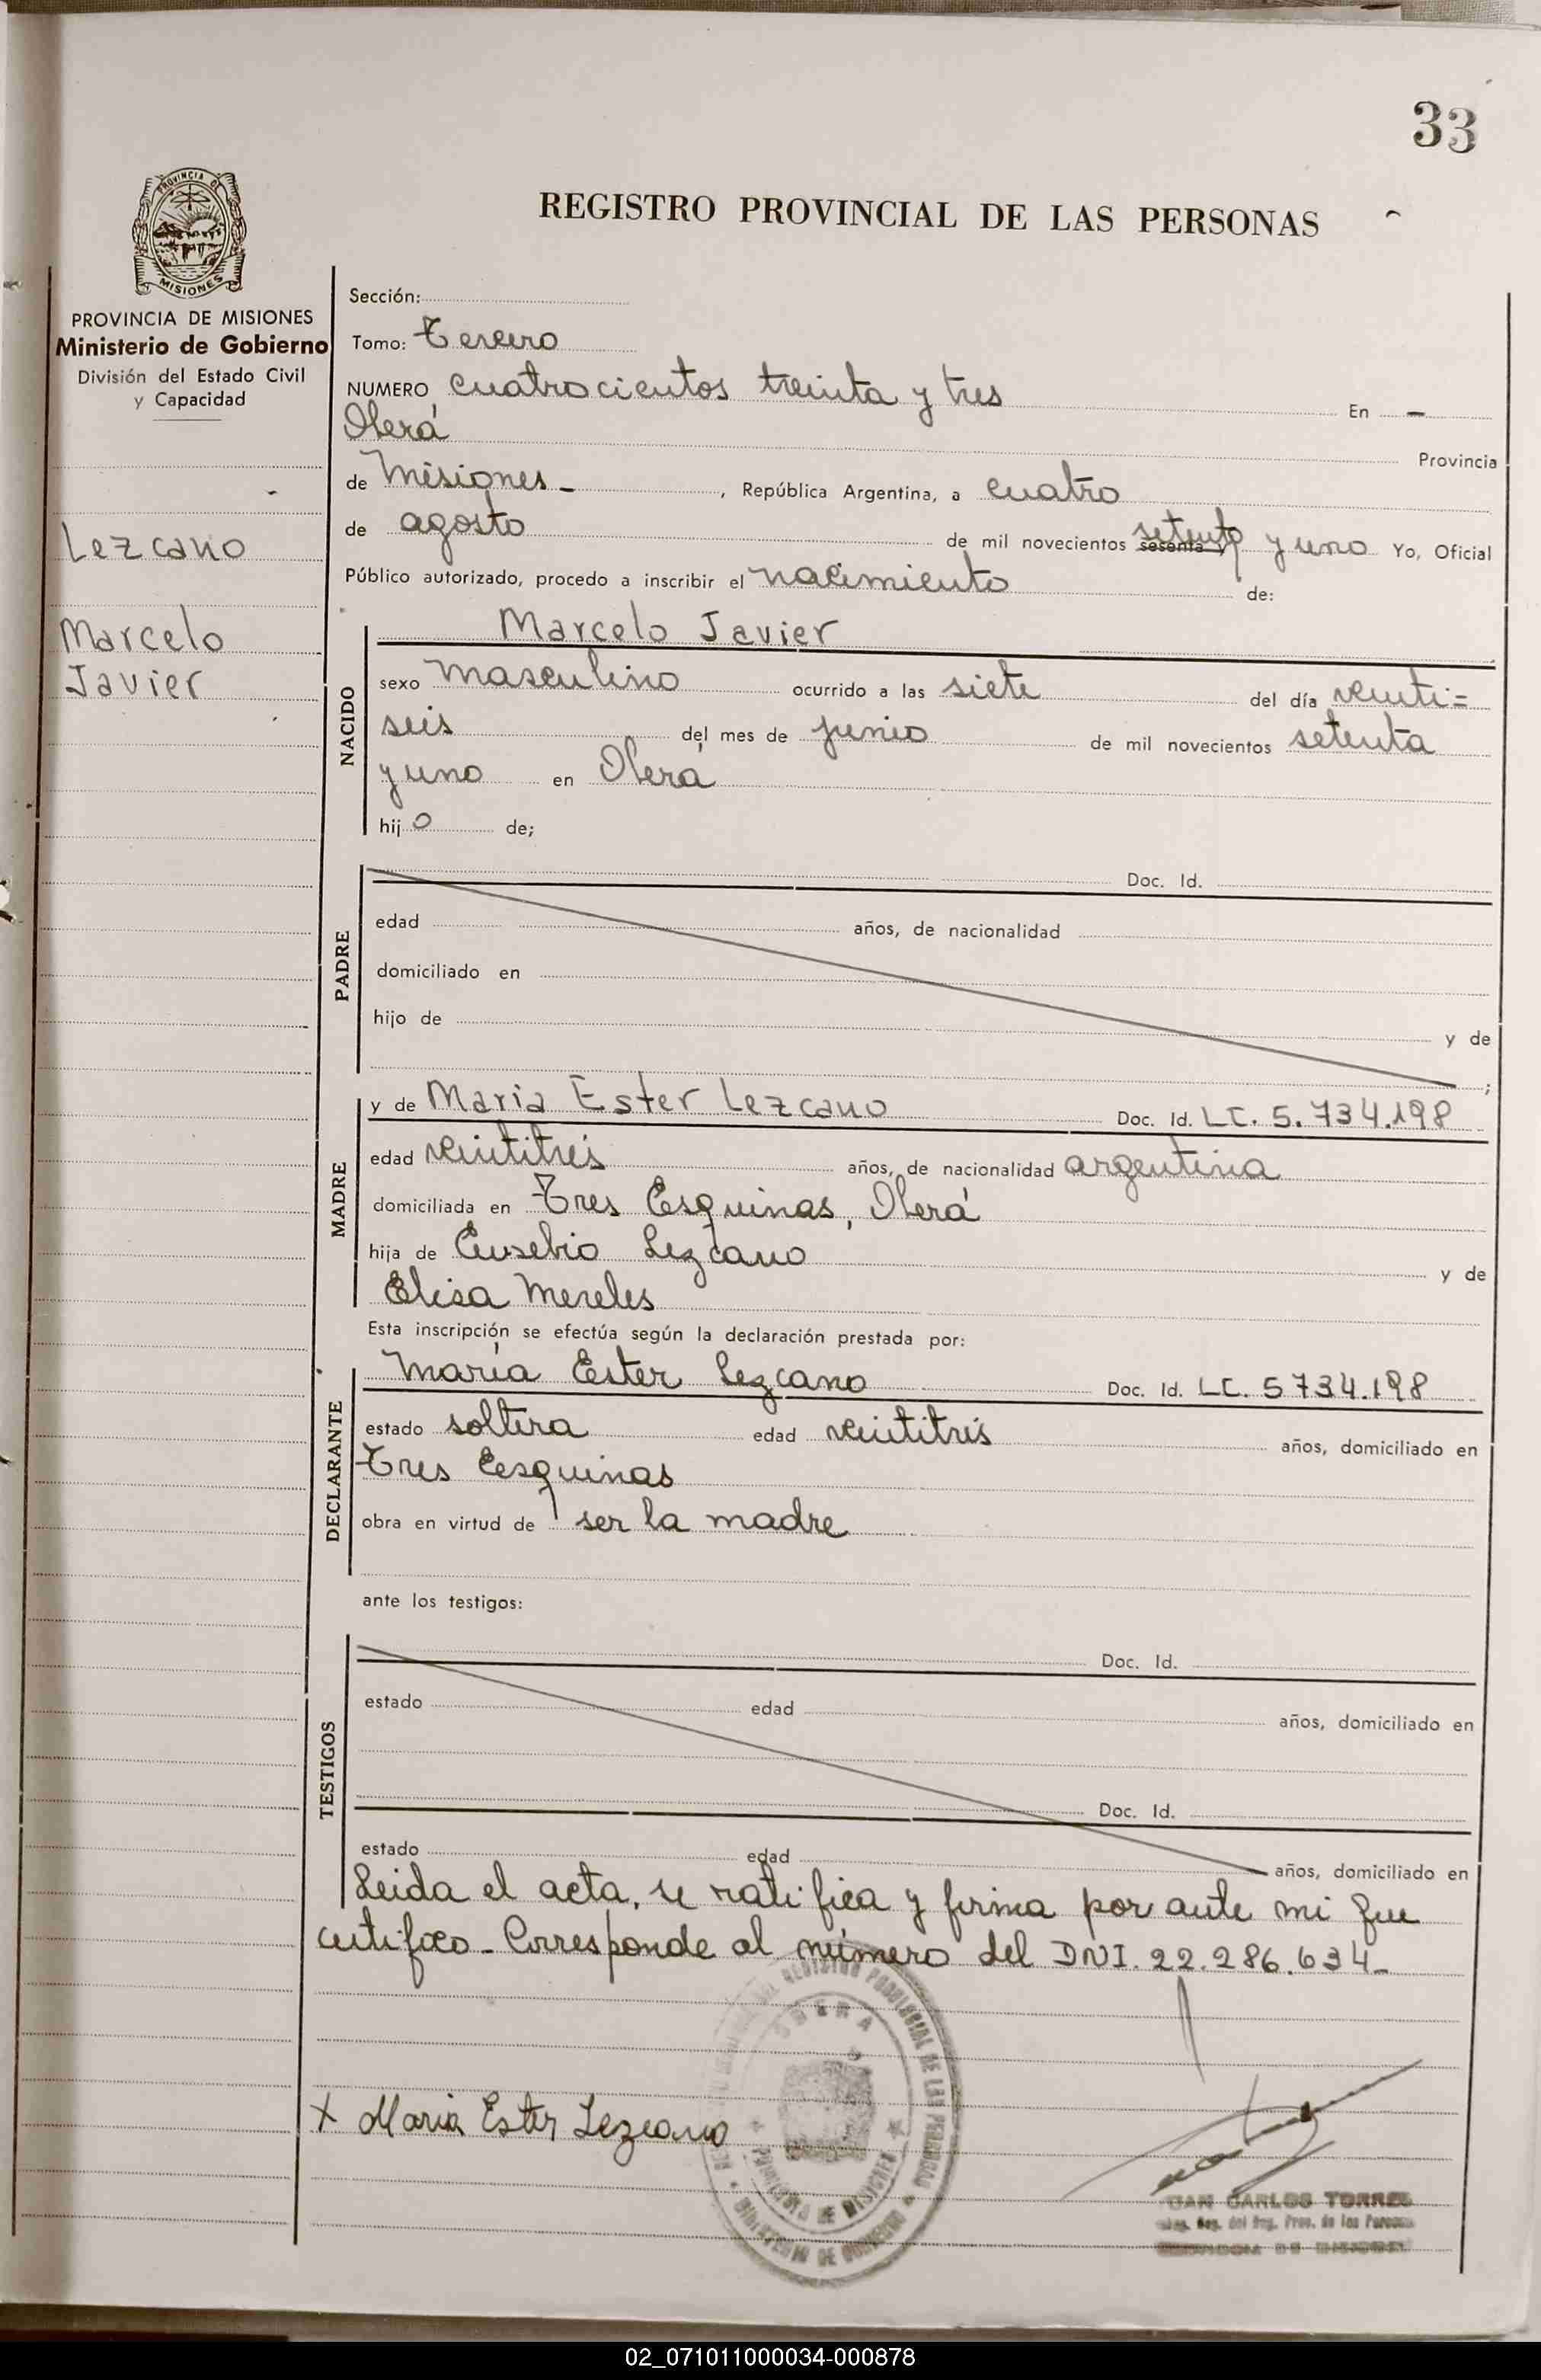 33
PROVINCIA DE
MISIONES
REGISTRO PROVINCIAL DE LAS PERSONAS
PROVINCIA DE MISIONES
Ministerio de Gobierno
División del Estado Civil
y Capacidad
Lezcano
Marcelo
Javier
Sección:
Tomo: Tercero
NUMERO cuatrocientos treinta y tres En -
Oberá Provincia
de Misiones - , República Argentina, a cuatro
de agosto de mil novecientos sesenta y setenta y uno Yo, Oficial
Público autorizado, procedo a inscribir el nacimiento de:
NACIDO
Marcelo Javier
sexo masculino ocurrido a las siete del día veinti=
seis del mes de junio de mil novecientos setenta
y uno en Obera
hij o de;
PADRE
Doc. Id.
edad años, de nacionalidad
domiciliado en
hijo de y de
;
MADRE
y de Maria Ester Lezcano Doc. Id. LC. 5.734.198
edad veintitrés años, de nacionalidad argentina
domiciliada en Tres Esquinas, Oberá
hija de Eusebio Lezcano y de
Elisa Mereles
Esta inscripción se efectúa según la declaración prestada por:
DECLARANTE
María Ester Lezcano Doc. Id. LC. 5734.198
estado soltera edad veintitrés años, domiciliado en
Tres Eesquinas
obra en virtud de ser la madre
ante los testigos:
TESTIGOS
Doc. Id.
estado edad años, domiciliado en
Doc. Id.
estado edad años, domiciliado en
Leida el acta, se ratifica y firma por ante mi que
certifico - Corresponde al número del DNI. 22.286.634-
REGISTRO PROVINCIAL DE LAS PERSONAS
OBERA
PROVINCIA DE MISIONES
MINISTERIO DE GOBIERNO
X Maria Ester Lezcano
CARLOS TORRES
Reg. Prov. de las Personas
02_071011000034-000878